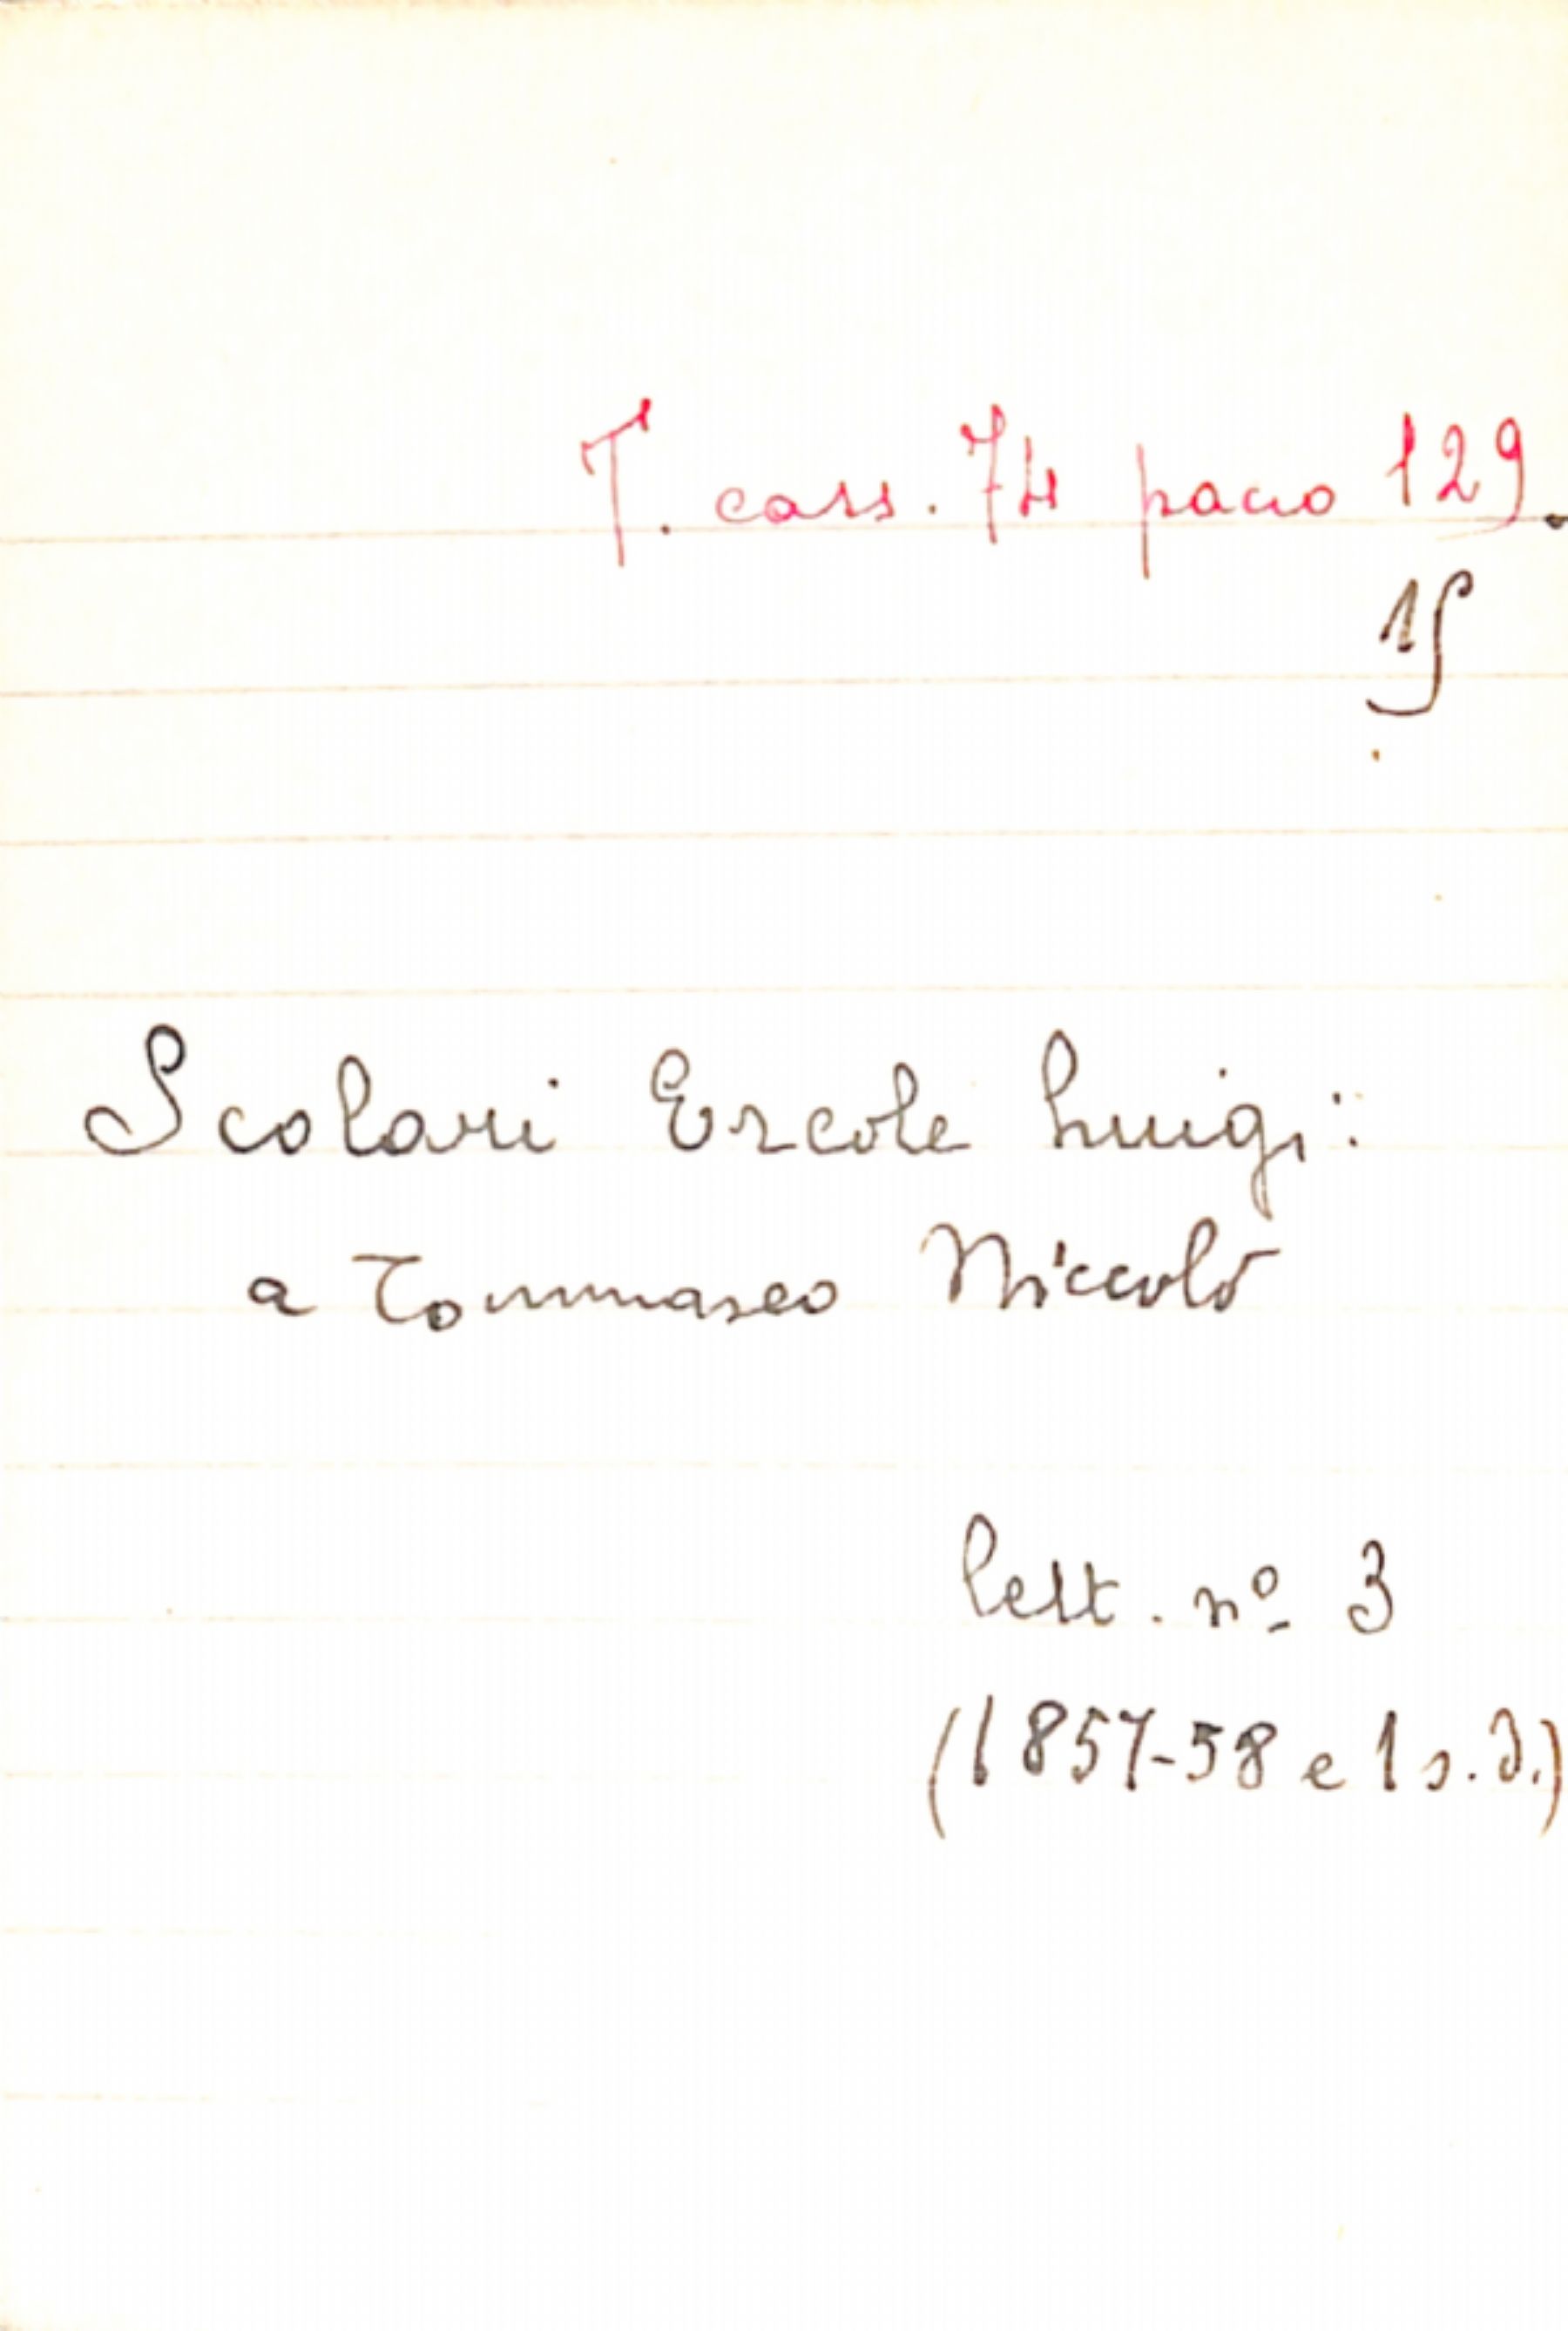 T. cass. 74 pacco 129.
15
Scolari Ercole Luigi:
a Tommaseo Niccolò
lett. nº 3
(1857-58 e 1 s.d.)